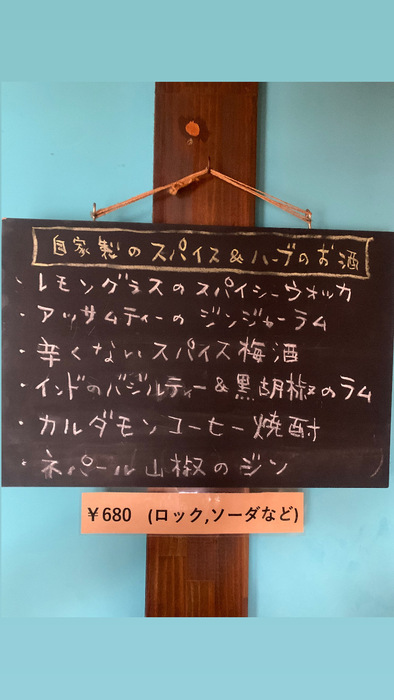 自家製のスパイス&ハーブのお酒
・レモングラスのスパイシーウォッカ
・アッサムティーのジンジャーラム
・辛くないスパイス梅酒
・インドのバジルティー&黒胡椒のラム
・カルダモンコーヒー焼酎
・ネパール山椒のジン
￥680 (ロック,ソーダなど)